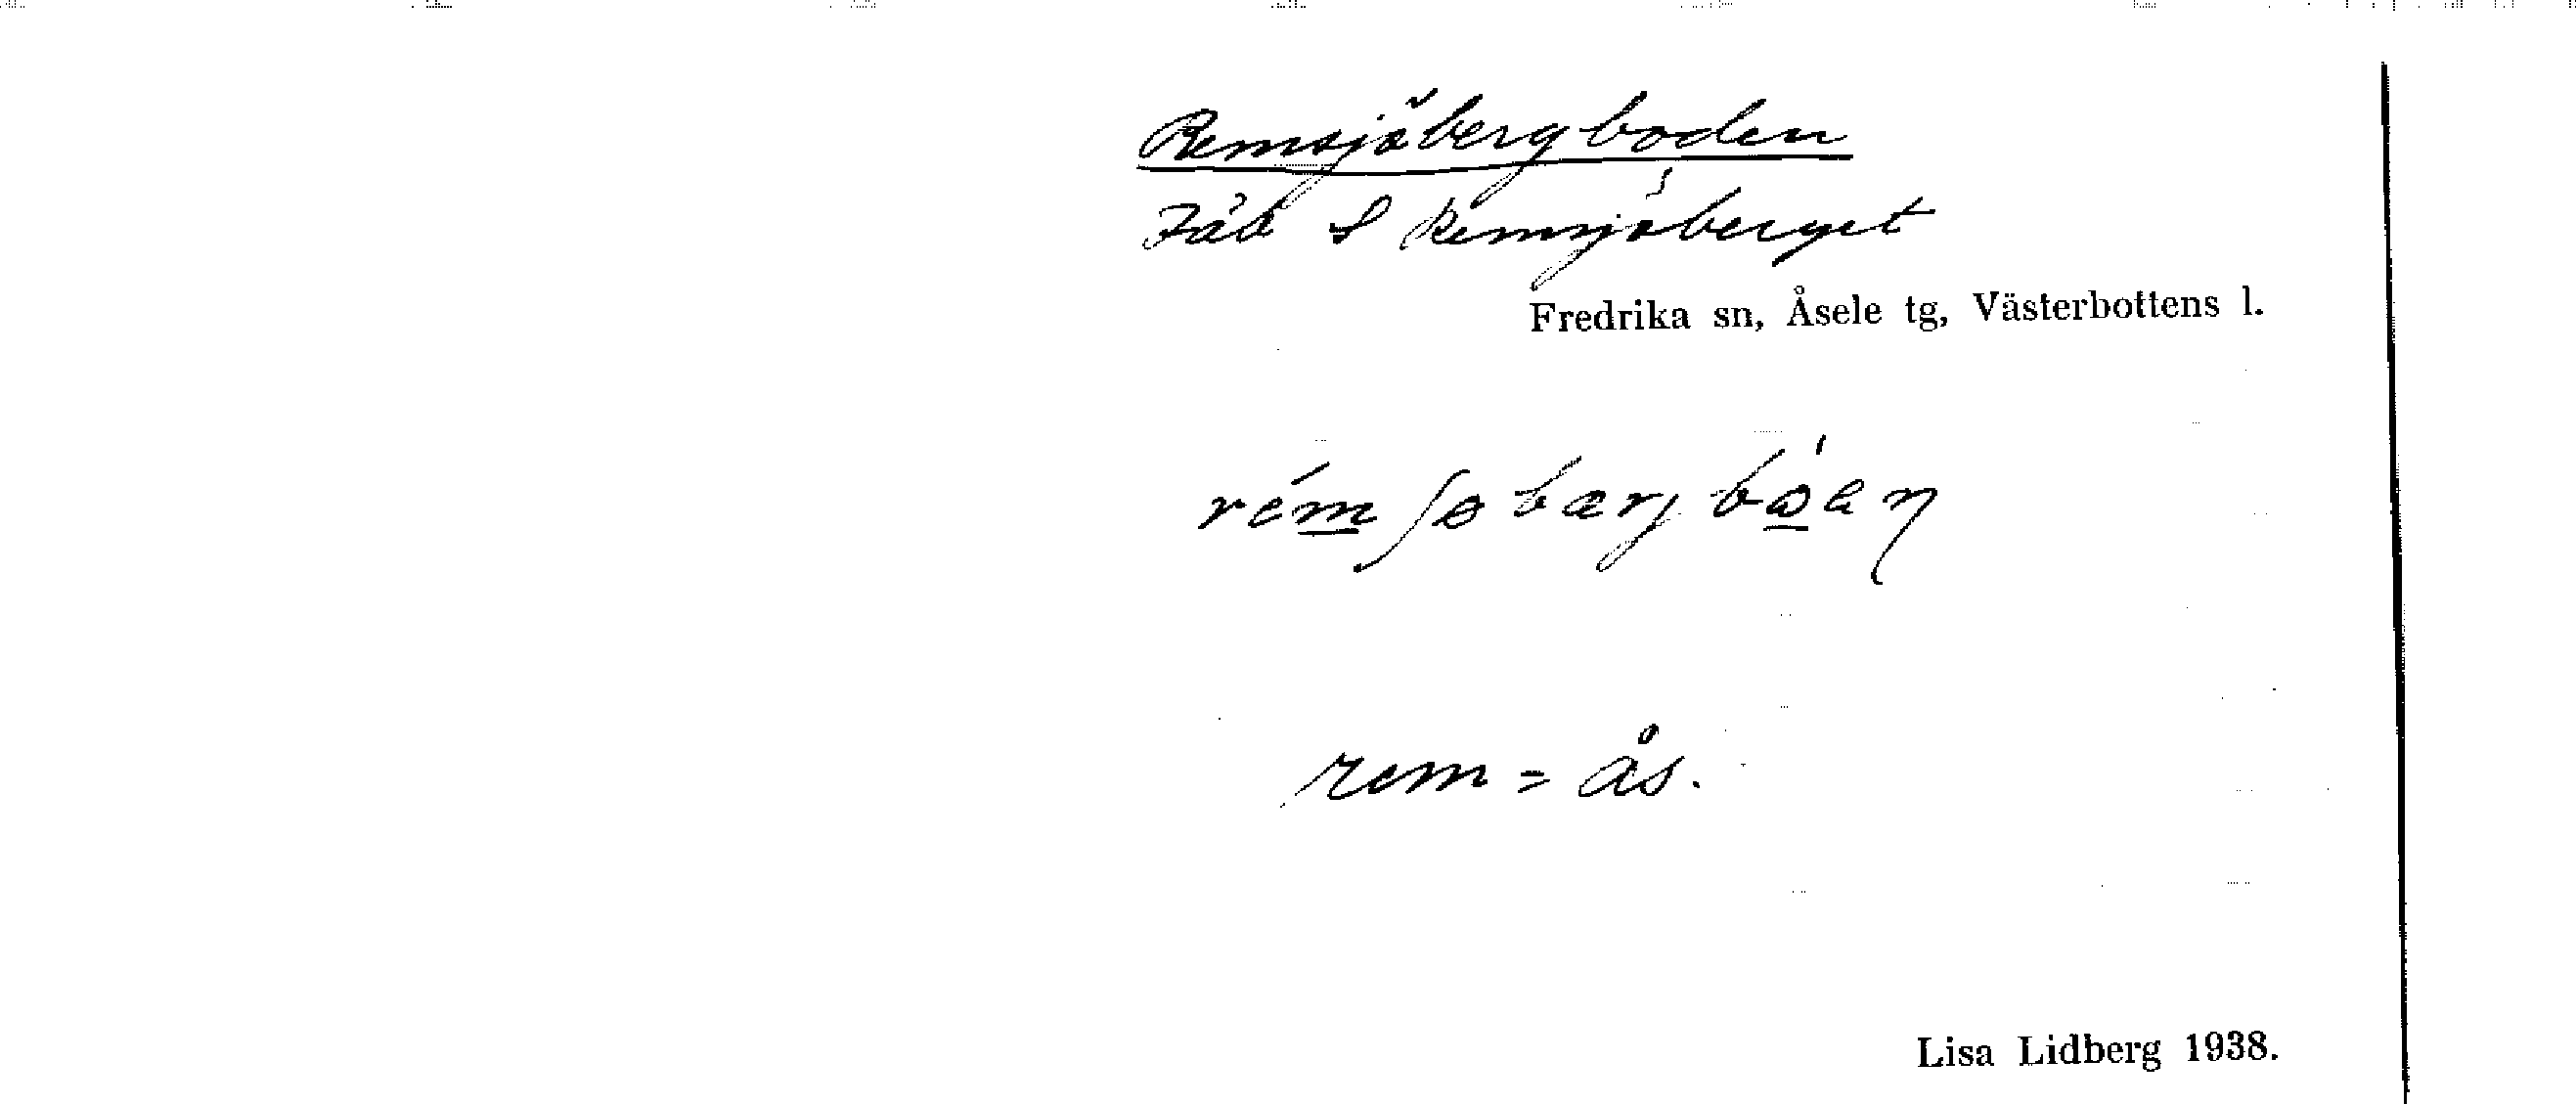 Remsjöbergboden
Fäb S Remsjöberget
Fredrika sn, Åsele tg, Västerbottens l.
rem = ås.
Lisa Lidberg 1938.